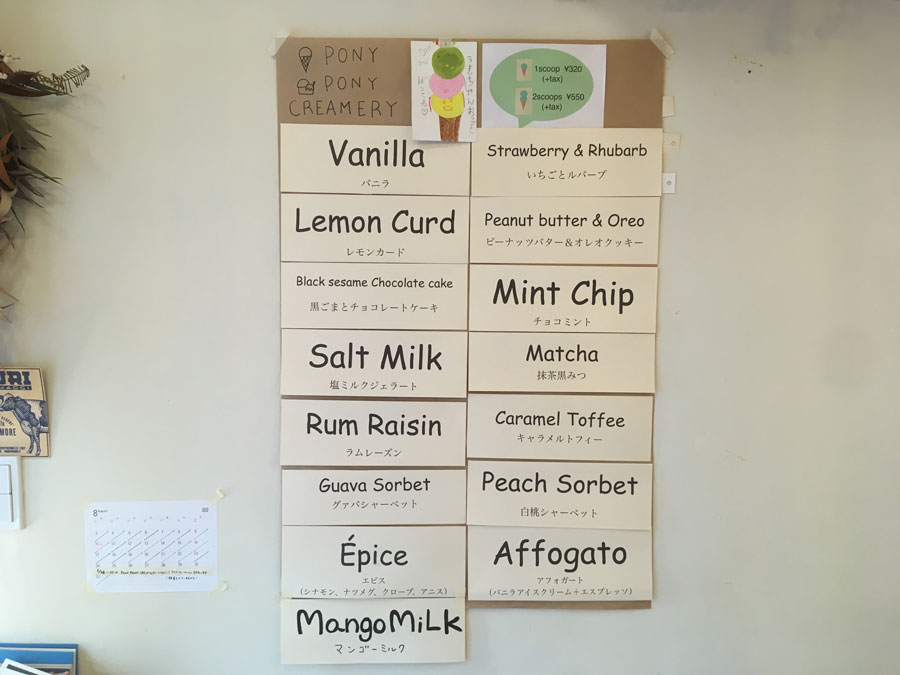 PONY
PONY
CREAMERY
1scoop ¥320
(+tax)
2scoops ¥550
(+tax)
Vanilla
バニラ
Lemon Curd
レモンカード
Black sesame Chocolate cake
黒ごまとチョコレートケーキ
Salt Milk
塩ミルクジェラート
Rum Raisin
ラムレーズン
Guava Sorbet
グァバシャーベット
Épice
エピス
(シナモン、ナツメグ、クローブ、アニス)
MangoMiLk
マンゴーミルク
Strawberry & Rhubarb
いちごとルバーブ
Peanut butter & Oreo
ピーナッツバター＆オレオクッキー
Mint Chip
チョコミント
Matcha
抹茶黒みつ
Caramel Toffee
キャラメルトフィー
Peach Sorbet
白桃シャーベット
Affogato
アフォガート
(バニラアイスクリーム+エスプレッソ)
8 August